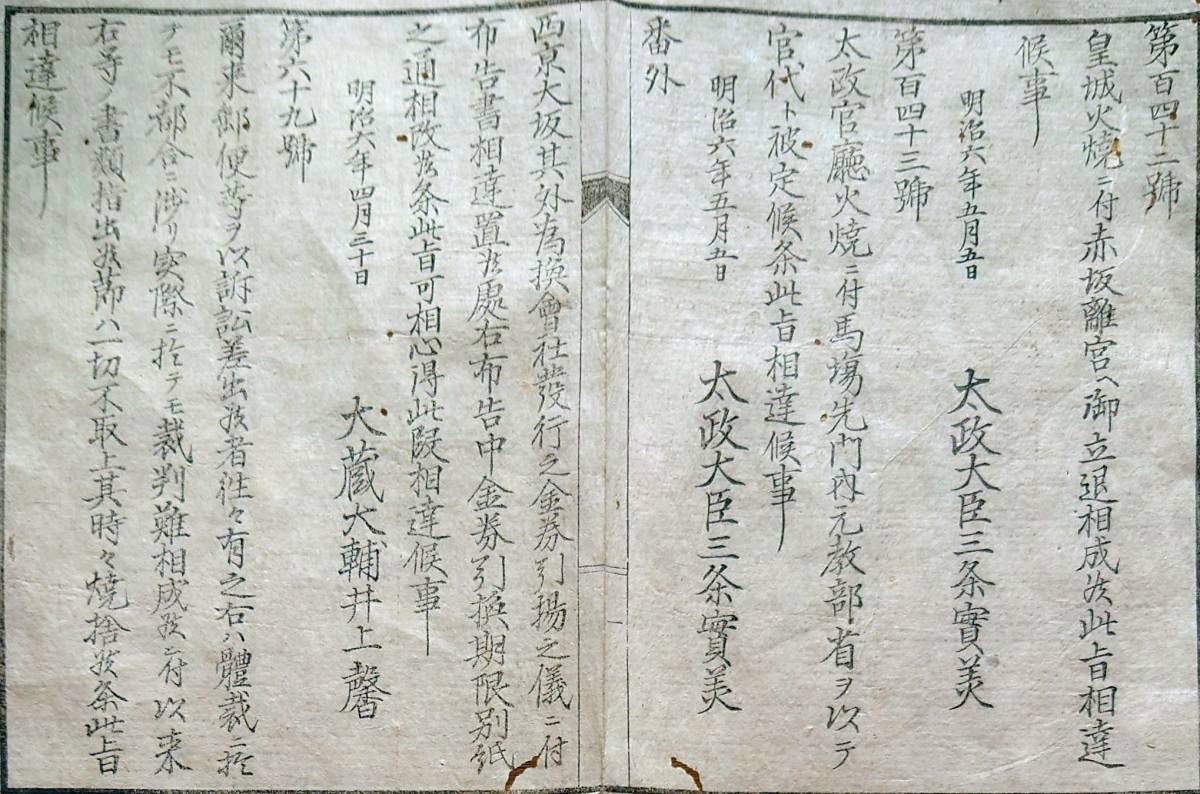 第百四十二號
皇城火燒ニ付赤坂離宮ヘ御立退相成候此旨相達
候事
明治六年五月五日
太政大臣三条實美
第百四十三號
太政官廳火燒ニ付馬場先門內元教部省ヲ以テ
官代ト被定候条此旨相達候事
明治六年五月五日
太政大臣三条實美
番外
西京大坂其外為換會社發行之金券引揚之儀ニ付
布告書相達置候處右布告中金券引換期限別紙
之通相改候条此旨可相心得此段相達候事
明治六年四月三十日
大藏大輔井上馨
第六十九號
爾來郵便等ヲ以訴訟差出候者往々有之右ハ體裁ニ於
テモ不都合ニ涉リ实際ニ於テモ裁判難相成候ニ付以来
右等ノ書類指出候節ハ一切不取上其時々燒捨候条此旨
相達候事